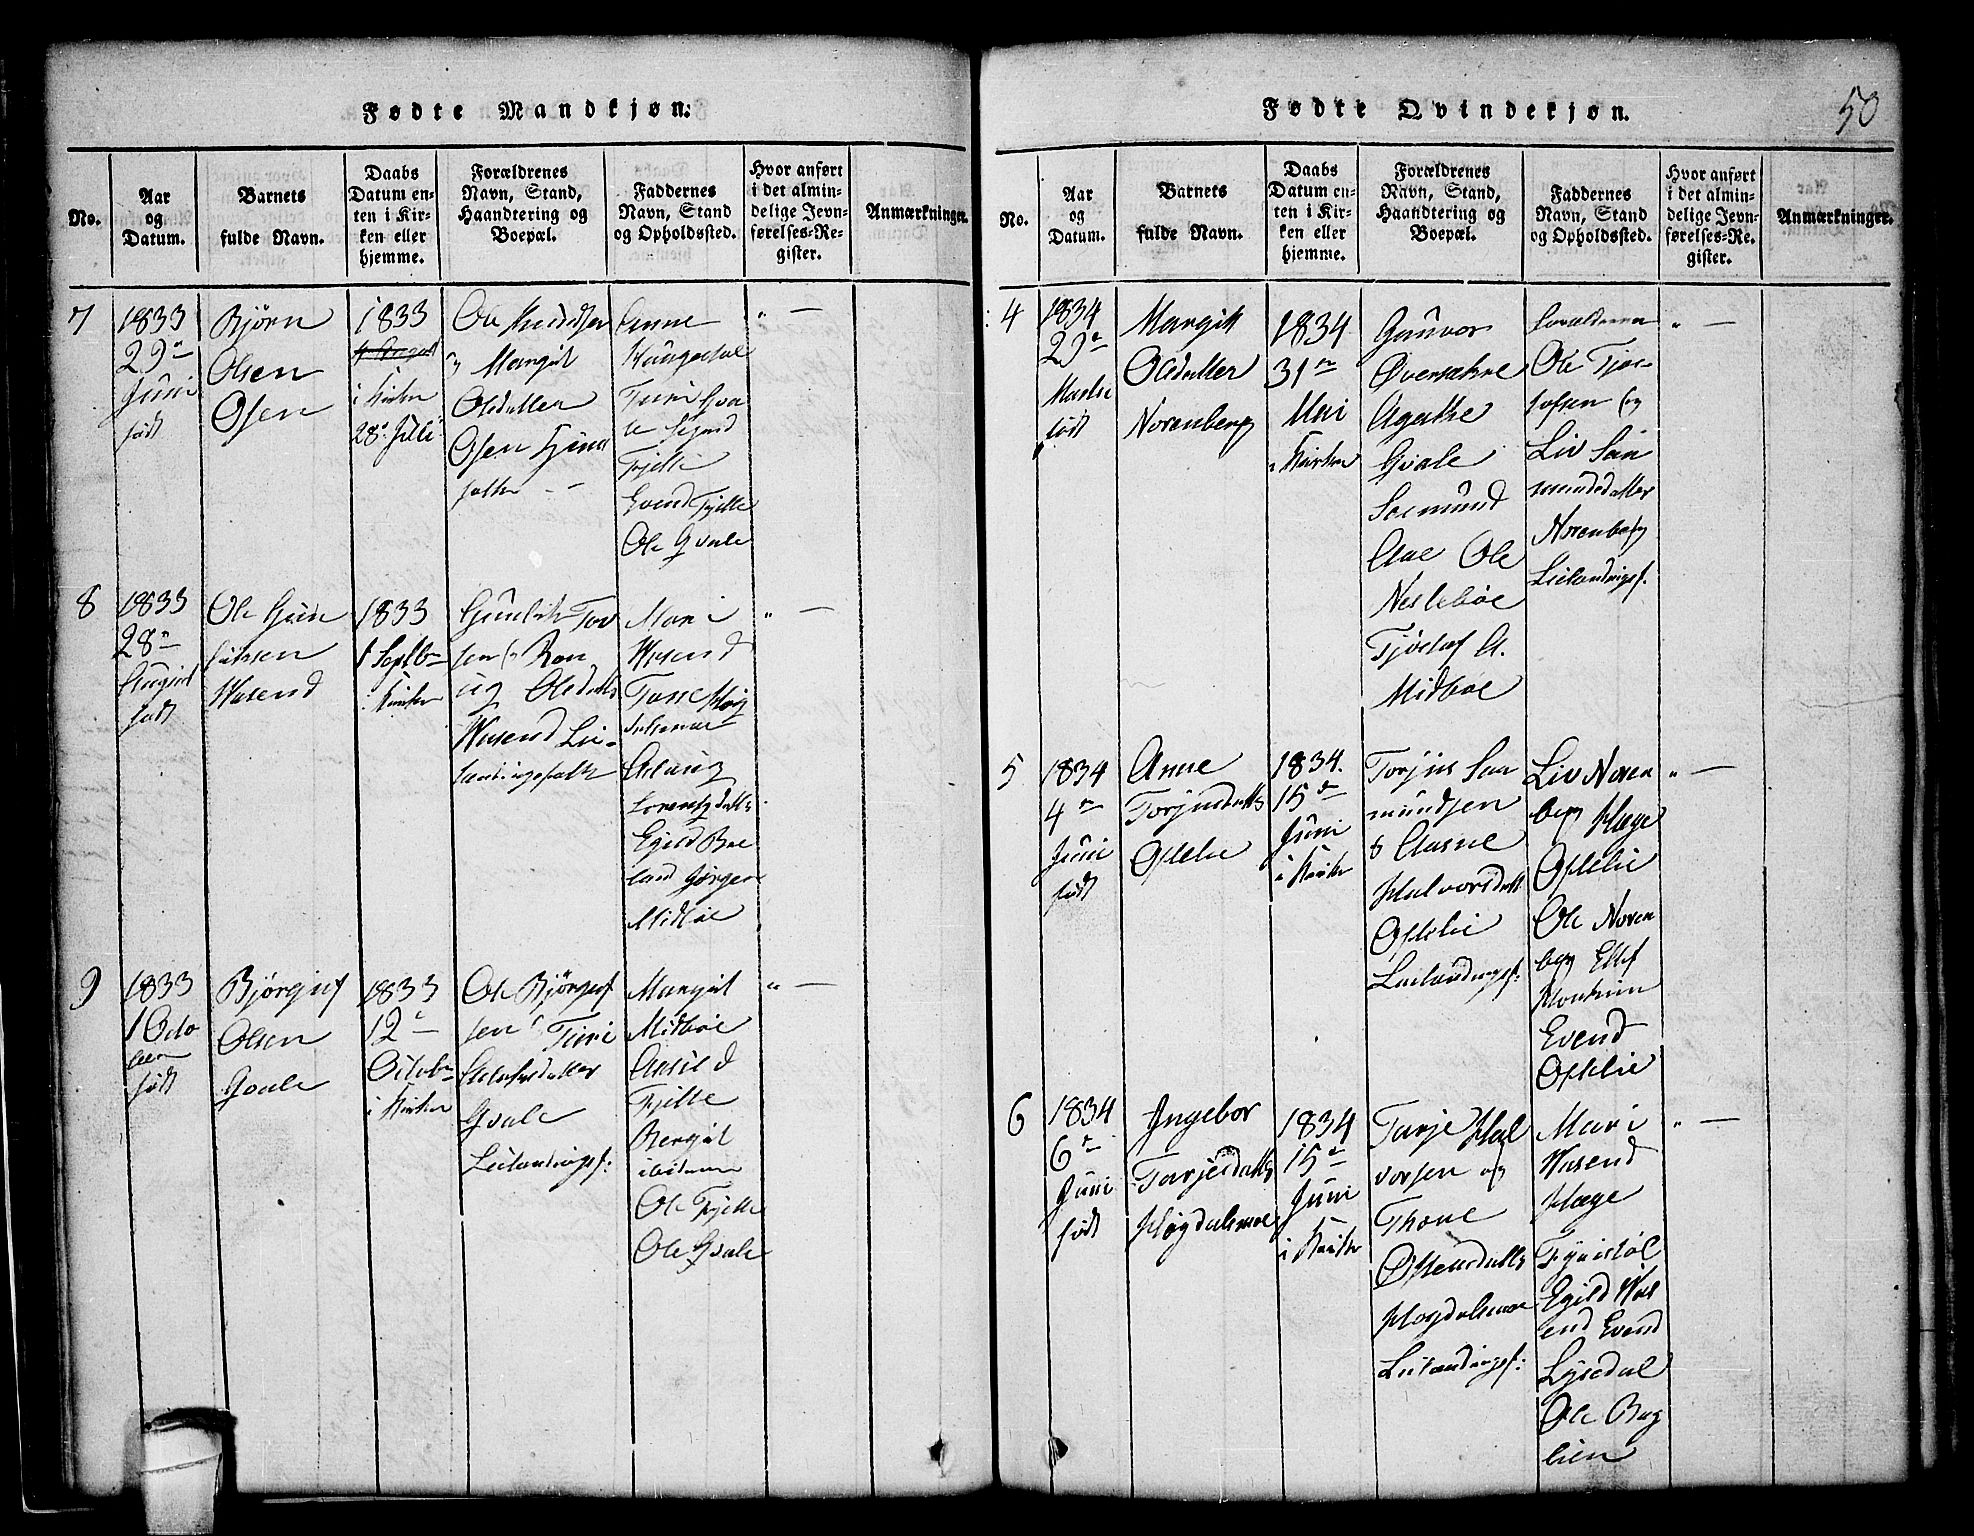 Fødte Mandkjøn:
No.
Aar
og
Datum.
Barnets
fulde Navn.
Daabs
Datum en-
ten i Kir-
ken eller
hjemme.
Forældrenes
Navn, Stand,
Haandtering og
Boepæl.
Faddernes
Navn, Stand
og Opholdssted.
Hvor anført
i det almin-
delige Jevn-
førelses-Re-
gister.
Anmærkninger.
7
1833
29de
Juni
født
Bjørn
Olsen
Osen
1833
i Kirken
28de Juli
Ole
Margit
Olsdatter
Osen
folk
Anne
Turi Gva
le Sigurd
Fjelle
Evend Fjelle
Ole Gvale
" —
8
1833
28de
August
født
Ole Gun
leiksen
Wasend
1833
1 Septbr
i Kirken
Gunleik Tov
sen og Ron
ug Olsdatt
Wasend Lei-
landingsfolk
Mari
Wasend
Tone Høg
dalsmoe
Aslaug
Egild Boe
land Jørgen
Midbøe
" —
9
1833
1 Octo
ber
født
Bjørguf
Olsen
Gvale
1833
12te
Octobr
i Kirken
Ole Bjørguf
sen Turi
datter
Gvale
Leilandingsf:
Margit
Midbøe
Aasild
Fjelle
Bergit
ibidem
Ole Fjelle
Ole Gvale
" —
Fødte Qvindekjøn.
50
No.
Aar
og
Datum.
Barnets
fulde Navn.
Daabs
Datum en-
ten i Kir-
ken eller
hjemme.
Forældrenes
Navn, Stand,
Haandtering og
Boepæl.
Faddernes
Navn, Stand
og Opholdssted.
Hvor anført
i det almin-
delige Jevn-
førelses-Re-
gister.
Anmærkninger.
4
1834
29de
Martii
født
Margit
Olsdatter
Norenberg
1834
31te
Mai
i Kirken
Gunvor
Øversakre
Agathe
Gvale
Soemund
Aae Ole
Neslebøe
Tjøstof A.
Midbøe
Forældrene
Ole Tjøs-
tofsen og
Liv Søn
mundsdatter
Norenberg
Leilandingsf.
" —
5
1834
4de
Juni
født
Anne
Torjusdatts
Ofstelie
1834.
15de
Juni
i Kirken
Torjus Søn
mundsen
& Aasne
Halvorsdatt
Leilandingsf:
Liv Noren
berg Hæge
Ole Noren
berg Ellef
Evend
" —
6
1834
6te
Juni
født
Ingebor
Tarjeisdatts
Høgdalsmoe
1834
15de
Juni
i Kirken
Tarje Hal
vorsen og
Thone
Østensdatts
Høgdalsmoe
Leilandingsf:
Mari
Wasend
Hæge
Egild Was
end Evend
Lysedal
Ole Bag
lien
" —